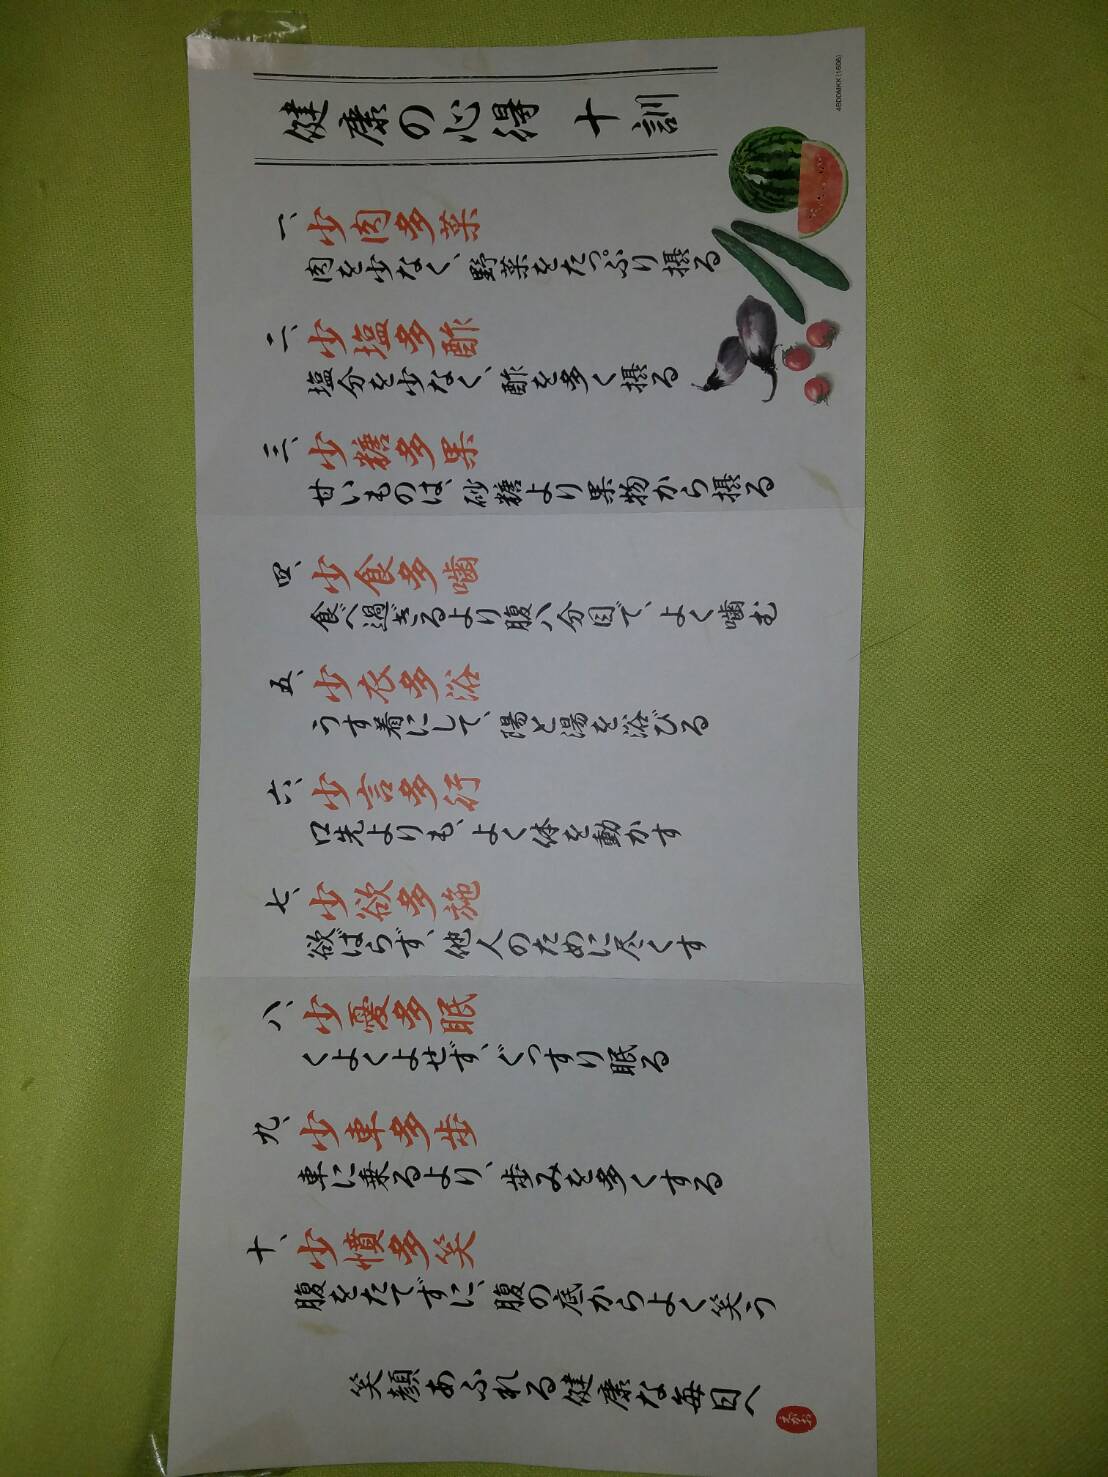 健康の心得 十訓
一、少肉多菜
肉を少なく、野菜をたっぷり摂る
二、少塩多酢
塩分を少なく、酢を多く摂る
三、少糖多果
甘いものは、砂糖より果物から摂る
四、少食多噛
食べ過ぎるより腹八分目で、よく噛む
五、少衣多浴
うす着にして、陽と湯を浴びる
六、少言多行
口先よりも、よく体を動かす
七、少欲多施
欲ばらず、他人のために尽くす
八、少憂多眠
くよくよせず、ぐっすり眠る
九、少車多歩
車に乗るより、歩みを多くする
十、少憤多笑
腹をたてずに、腹の底からよく笑う
笑顔あふれる健康な毎日へ